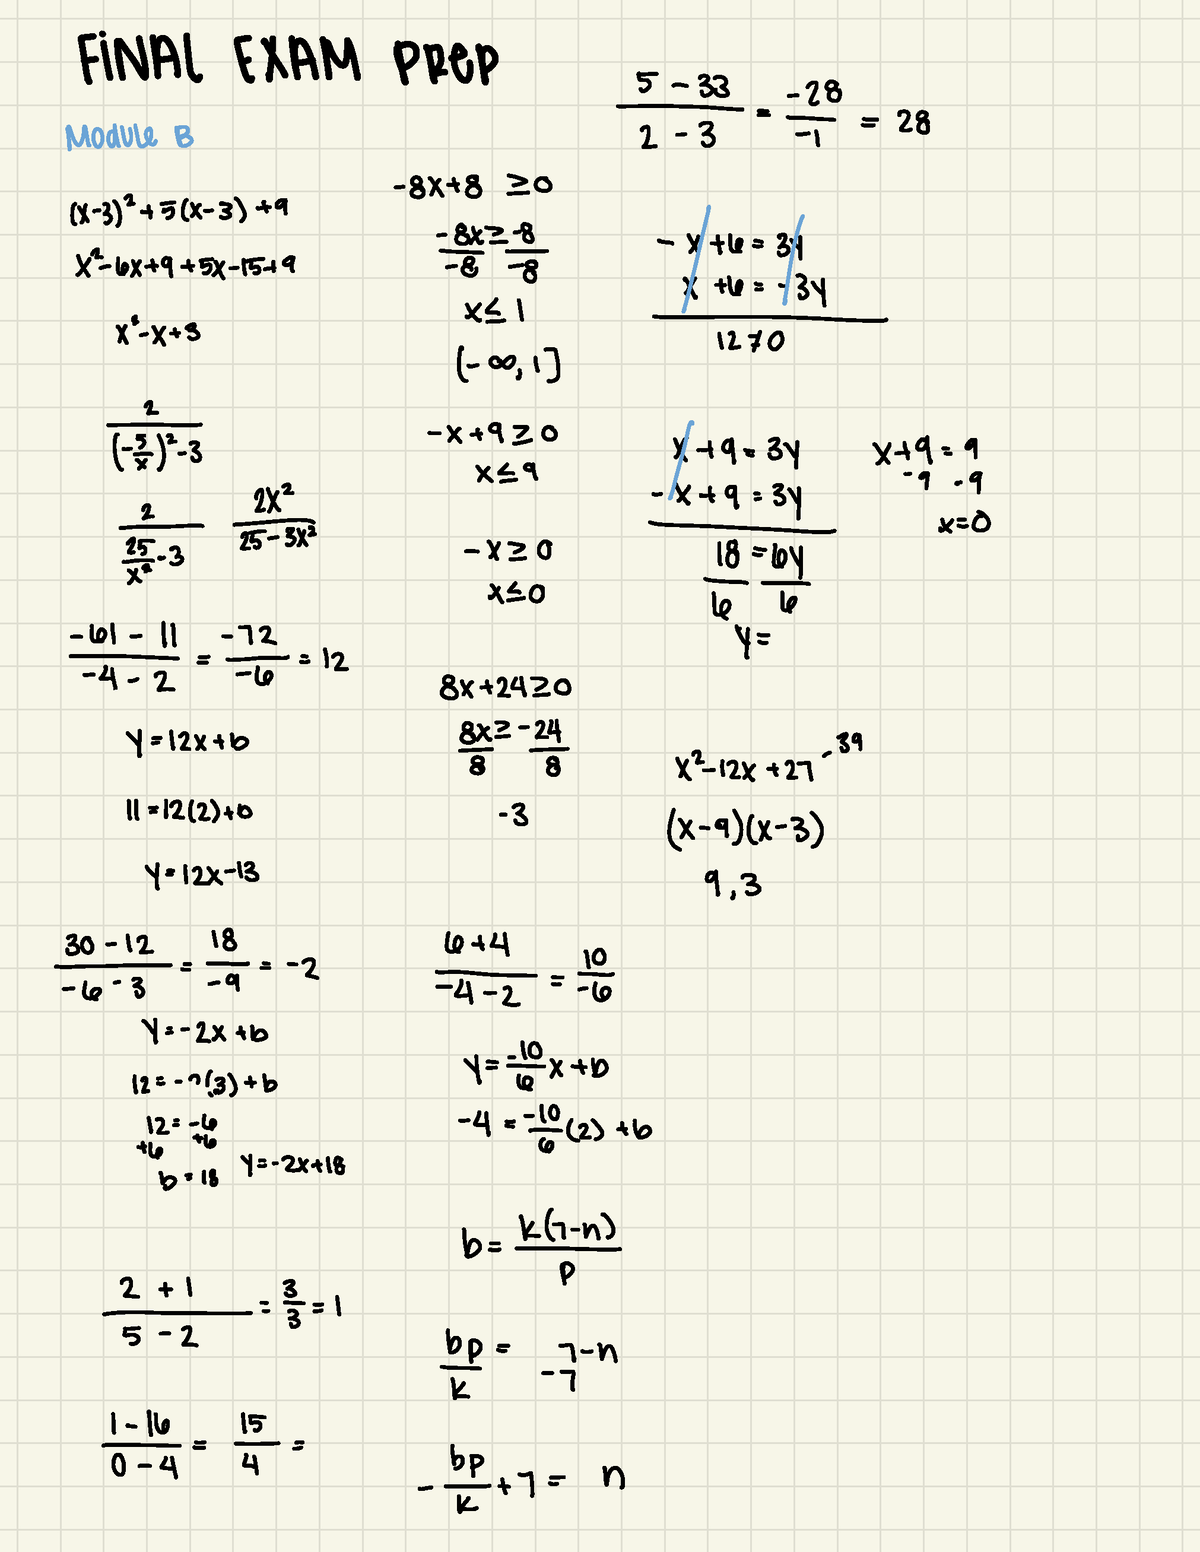 FiNAL EXAM PReP
Module B
(x-3)² + 5(x-3) +9
x²-6x+9+5x-15+9
x²-x+3
2
(-5/x)²-3
2
25/x² -3
2x²
25-3x²
-61 - 11 / -4 - 2 = -72 / -6 = 12
y=12x+b
11=12(2)+b
y=12x-13
30-12 / -6-3 = 18 / -9 = -2
y=-2x+b
12=-2(3)+b
12=-6
+6 +6
b=18 y=-2x+18
2 +1 / 5 -2 = 3/3 = 1
1-16 / 0-4 = 15 / 4 =
-8x+8 ≥0
-8x≥-8
-8 -8
x≤ 1
(-∞,1]
-x+9≥0
x≤9
-x≥0
x≤0
8x+24≥0
8x≥-24
8 8
-3
6+4 / -4-2 = 10 / -6
y= -10/6 x+b
-4 = -10/6 (2) +b
b= k(7-n) / p
bp/k = 7-n
-7
- bp/k +7= n
5 - 33 / 2 - 3 = -28 / -1 = 28
- x +6= 3y
x +6= -3y
12≠0
x +9= 3y
-x+9=3y
18=6y
6 6
y=
x+9=9
-9 -9
x=0
x²-12x+27 -39
(x-9)(x-3)
9,3